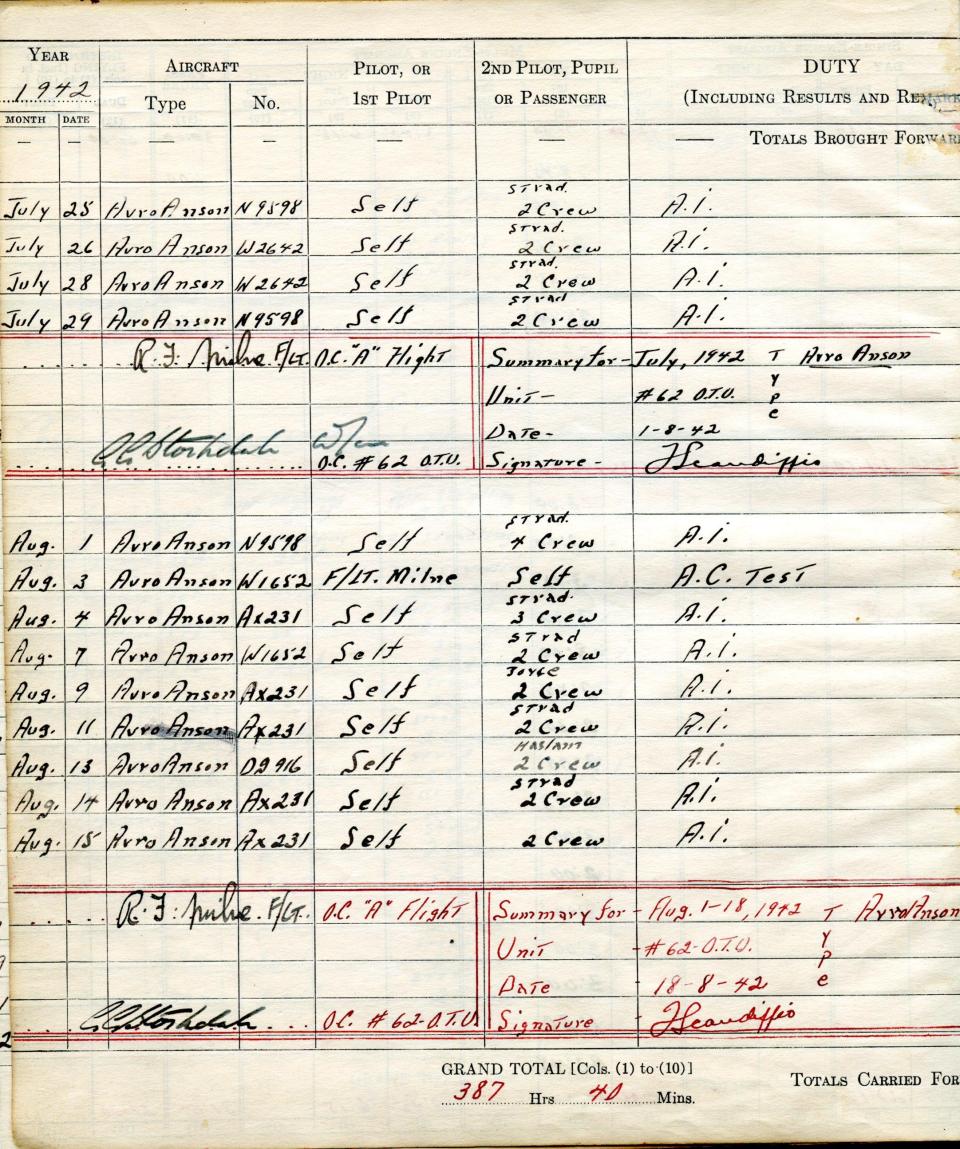 YEAR AIRCRAFT PILOT, OR 2ND PILOT, PUPIL DUTY
1942 Type No. 1ST PILOT OR PASSENGER (INCLUDING RESULTS AND REMARKS
MONTH DATE
— — — — — — — TOTALS BROUGHT FORWAR
Strad.
July 25 Avro Anson N9598 Self 2 Crew A.I.
Strad.
July 26 Avro Anson W2642 Self 2 Crew A.I.
Strad.
July 28 Avro Anson W2642 Self 2 Crew A.I.
Strad
July 29 Avro Anson N9598 Self 2 Crew A.I.
R.F. Milne F/LT. O.C. "A" Flight Summary for - July, 1942 Type Avro Anson
Unit - #62 O.T.U.
Date - 1-8-42
O.C. #62 O.T.U. Signature - J Scandiffio
Strad.
Aug. 1 Avro Anson N9598 Self 4 Crew A.I.
Aug. 3 Avro Anson W1652 F/LT. Milne Self A.C. Test
Strad.
Aug. 4 Avro Anson Ax231 Self 3 Crew A.I.
Strad
Aug. 7 Avro Anson W1652 Self 2 Crew A.I.
Aug. 9 Avro Anson Ax231 Self 2 Crew A.I.
Strad
Aug. 11 Avro Anson Ax231 Self 2 Crew A.I.
Haslam
Aug. 13 Avro Anson DJ916 Self 2 Crew A.I.
Strad
Aug. 14 Avro Anson Ax231 Self 2 Crew A.I.
Aug. 15 Avro Anson Ax231 Self 2 Crew A.I.
R.F. Milne. F/LT. O.C. "A" Flight Summary for - Aug. 1-18, 1942 Type Avro Anson
Unit - #62-O.T.U.
Date - 18-8-42
O.C. #62-O.T.U. Signature - J Scandiffio
GRAND TOTAL [Cols. (1) to (10)]
387 Hrs 40 Mins. TOTALS CARRIED FOR